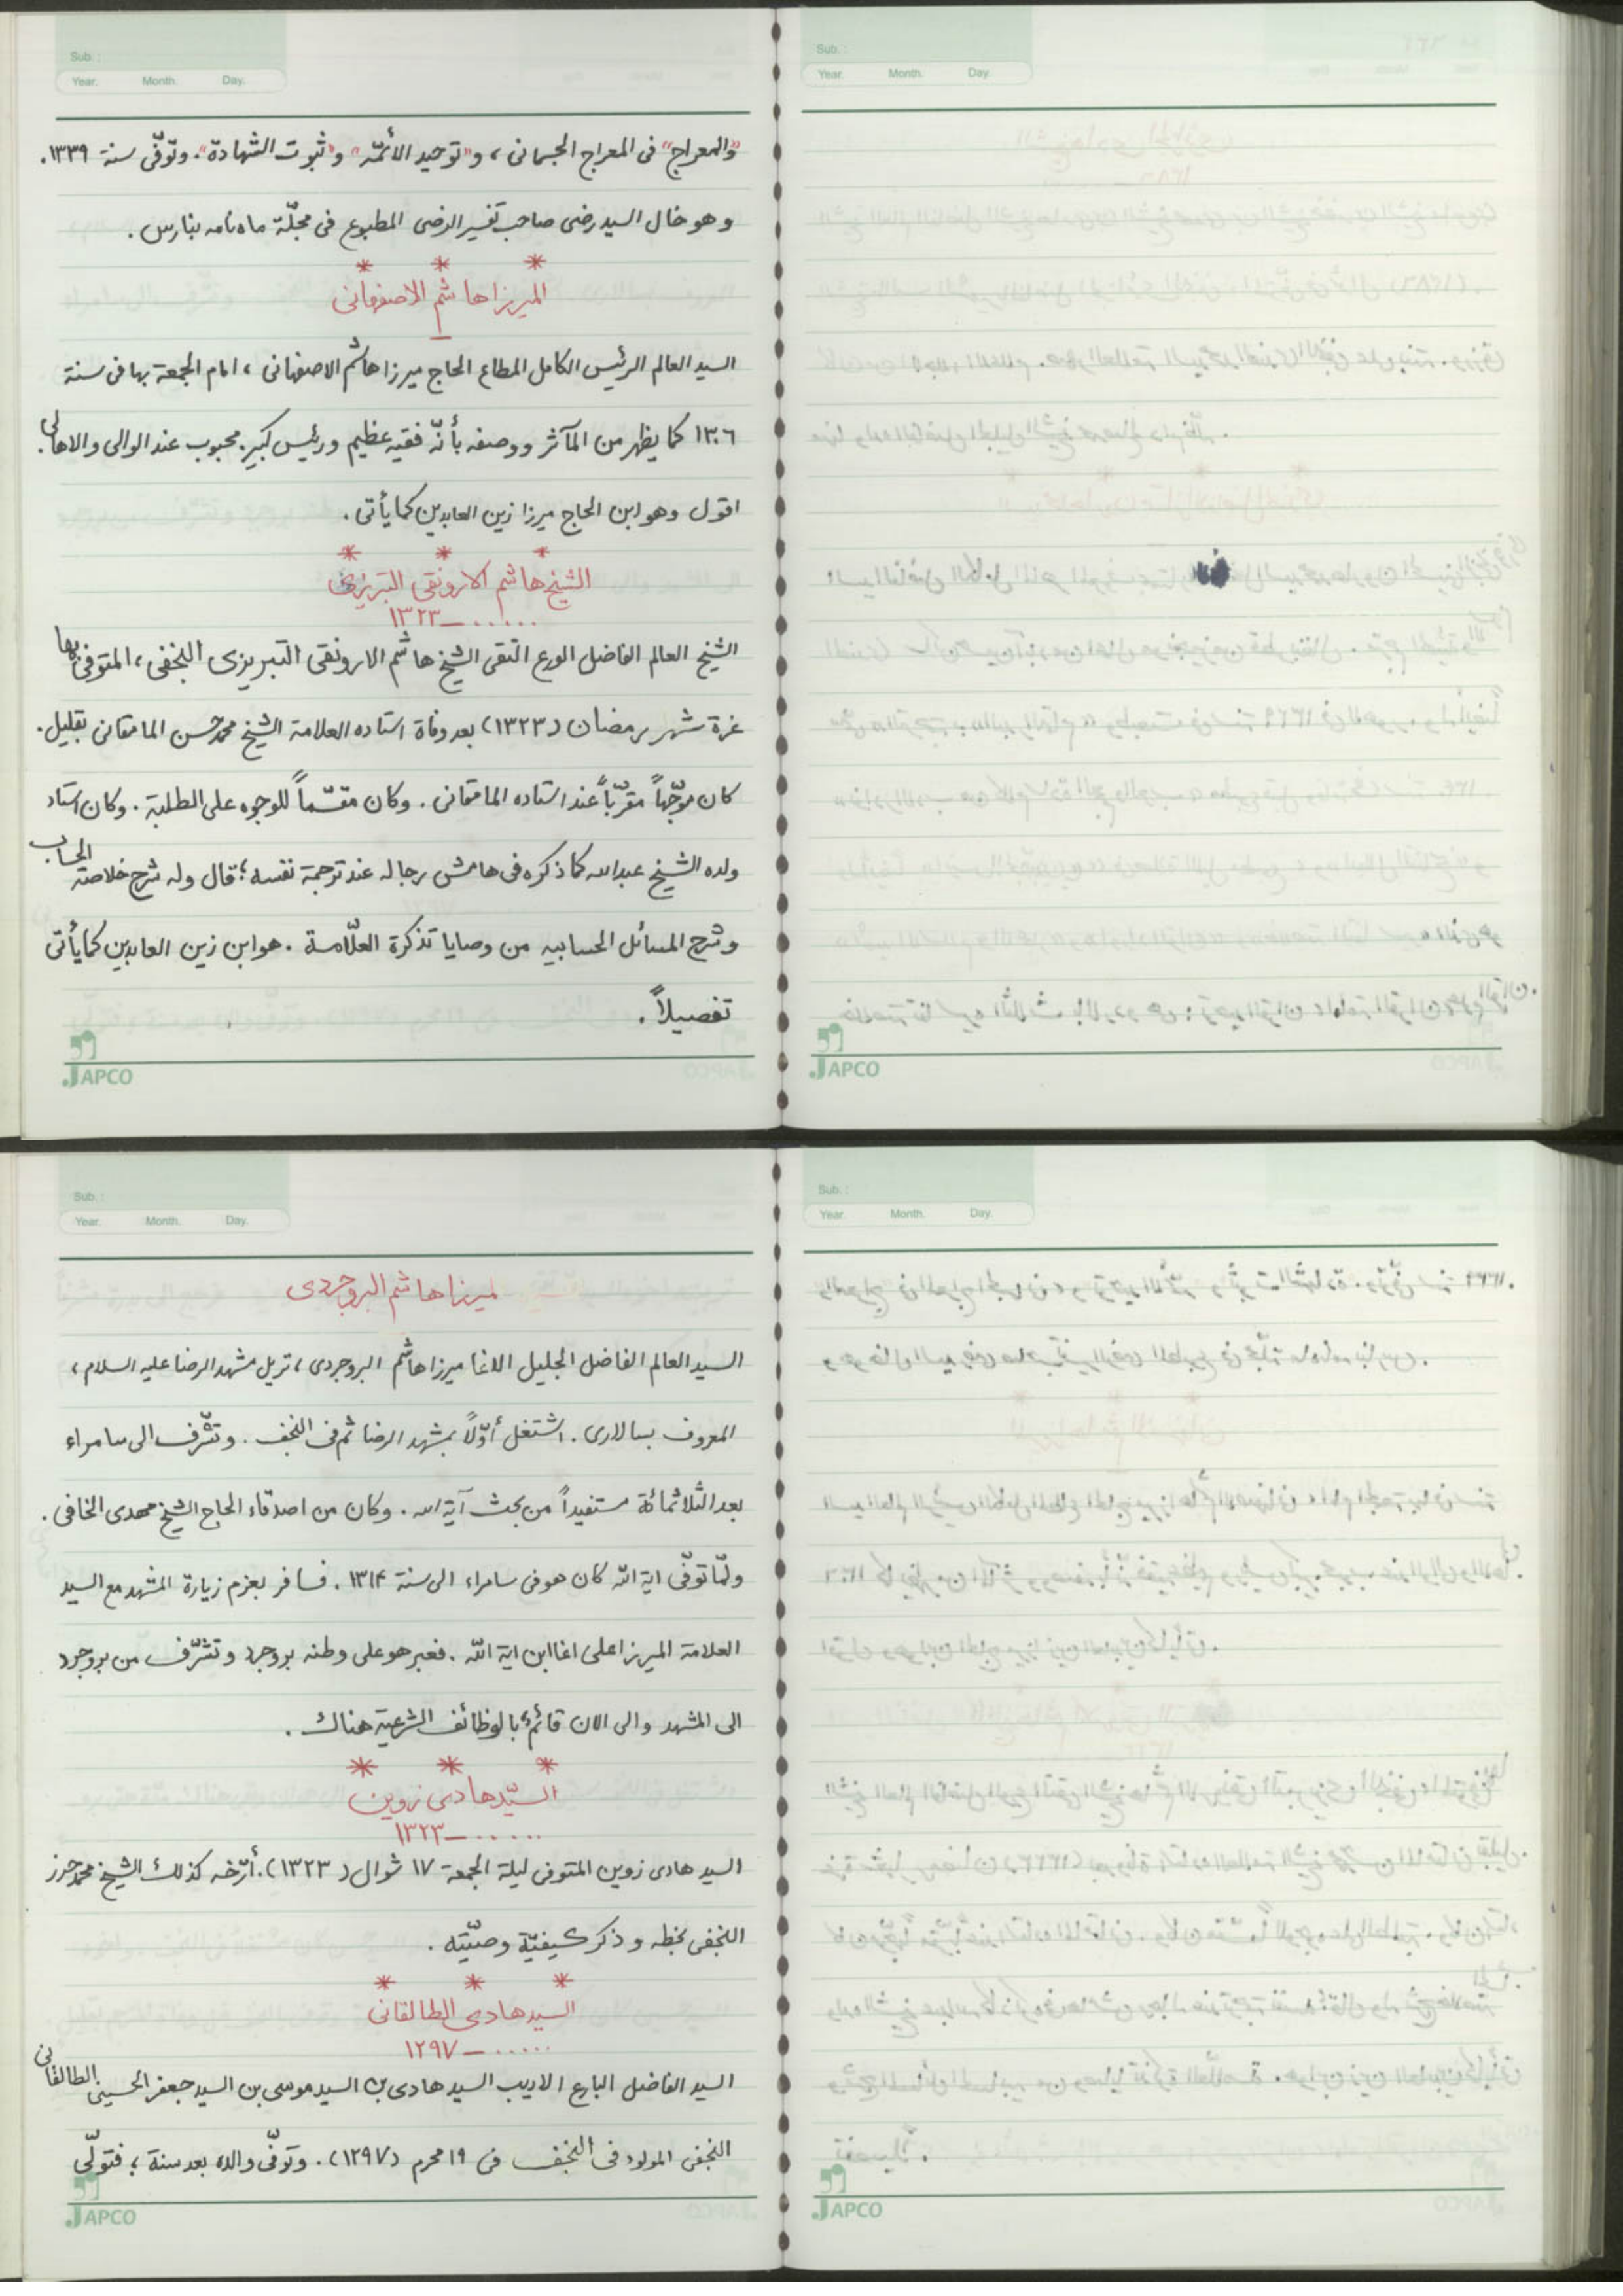 Sub. :
Year. Month. Day.
"والمعراج" فى المعراج الجسمانى، و"توحيد الأئمّه" و"ثبوت الشهادة". وتوّفّى سنة ١٣٣٩.
وهو خال السيد رضى صاحب تفسير الرضى المطبوع فى مجلّة ماه نامه بنارس.
* * *
الميرزا هاشم الاصفهانى
السيد العالم الرئيس الكامل المطاع الحاج ميرزا هاشم الاصفهانى، امام الجمعة بها فى سنة
١٣٠٦ كما يظهر من المآثر ووصفه بأنّه فقيه عظيم ورئيس كبير. محبوب عند الوالى والاهالى.
اقول وهو ابن الحاج ميرزا زين العابدين كما يأتى.
* * *
الشيخ هاشم الارونقى التبريزى
١٣٢٣ــ......
الشيخ العالم الفاضل الورع التقى الشيخ هاشم الارونقى التبريزى النجفى، المتوفى بها
غرة شهر رمضان (١٣٢٣) بعد وفاة استاده العلامة الشيخ محمد حسن المامقانى بقليل.
كان موجّهاً مقرّباً عند استاده المامقانى. وكان مقسّماً للوجوه على الطلبة. وكان استاد
ولده الشيخ عبدالله كما ذكره فى هامش رجاله عند ترجمة نفسه؛ قال وله شرح خلاصة الحساب
وشرح المسائل الحسابيه من وصايا تذكرة العلّامة. هو ابن زين العابدين كما يأتى
تفصيلاً.
JAPCO
Sub. :
Year. Month. Day.
JAPCO
Sub. :
Year. Month. Day.
لميرزا هاشم البروجردى
السيد العالم الفاضل الجليل الاغا ميرزا هاشم البروجردى، نزيل مشهد الرضا عليه السلام،
المعروف بسالارى. اشتغل أوّلاً بمشهد الرضا ثم فى النجف. وتشّرف الى سامراء
بعد الثلاثمائة مستفيداً من بحث آية الله. وكان من اصدقاء الحاج الشيخ مهدى الخافى.
ولمّا توفّى اية الله كان هو فى سامراء الى سنة ١٣١۴. فسافر بعزم زيارة المشهد مع السيد
العلامة الميرزا على اغا ابن اية الله. فعبر هو على وطنه بروجرد وتشّرف من بروجرد
الى المشهد والى الان قائمٌ بالوظائف الشرعية هناك.
* * *
السيّد هادى زوين
١٣٢٣ــ......
السيد هادى زوين المتوفى ليلة الجمعة ١٧ شوال (١٣٢٣). أرّخه كذلك الشيخ محمد حرز
النجفى بخطه وذكر كيفيّة وصيّته.
* * *
السيد هادى الطالقانى
١٢٩٧ــ......
السيد الفاضل البارع الاديب السيد هادى بن السيد موسى بن السيد جعفر الحسينى الطالقانى
النجفى المولود فى النجف فى ١٩ محرم (١٢٩٧). وتوّفّى والده بعد سنة؛ فتولّى
JAPCO
Sub. :
Year. Month. Day.
JAPCO